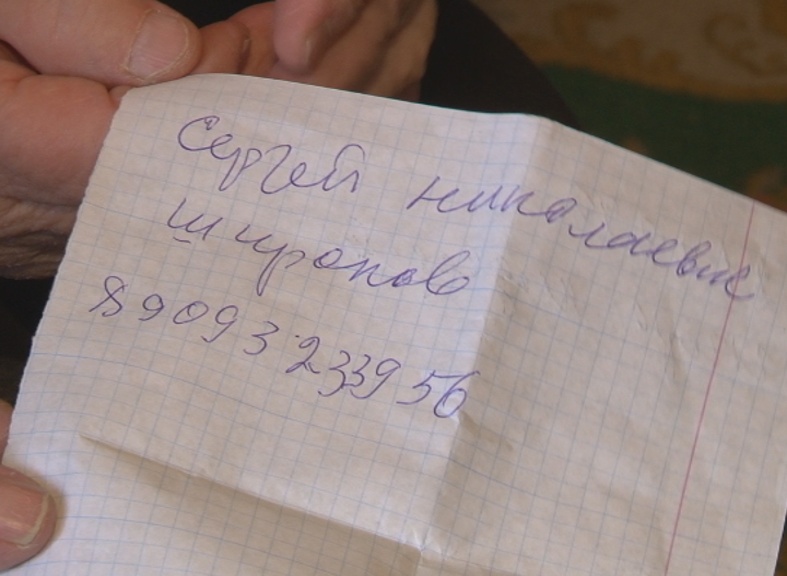 Сергей николаевич
Широков
89093233956